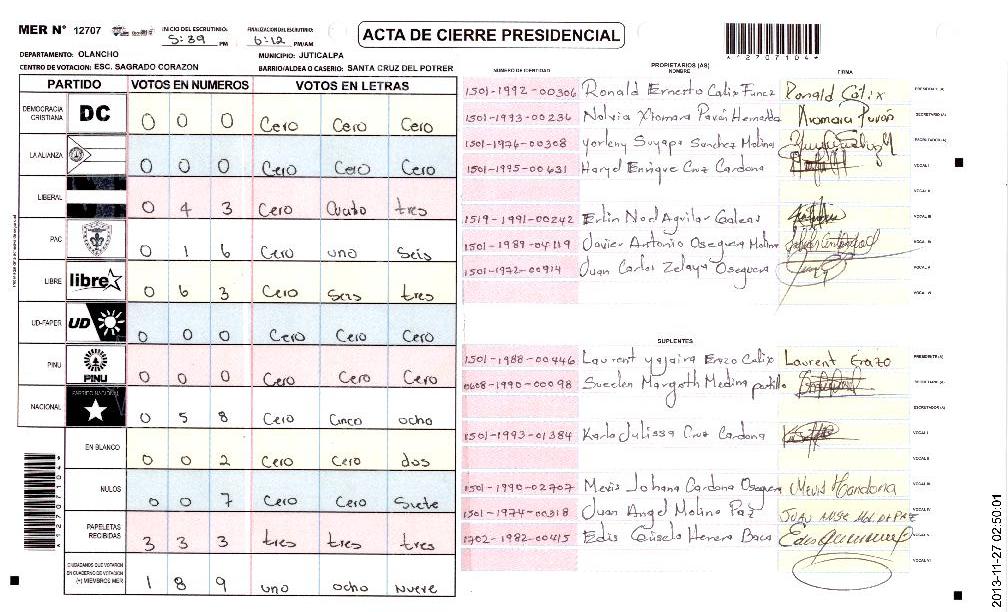 MER N° 12707
INICIO DEL ESCRUTINIO: 5:39 PM
FINALIZACION DEL ESCRUTINIO: 6:12 PM/AM
ACTA DE CIERRE PRESIDENCIAL
*12707104*
DEPARTAMENTO: OLANCHO
MUNICIPIO: JUTICALPA
CENTRO DE VOTACION: ESC. SAGRADO CORAZON
BARRIO/ALDEA O CASERIO: SANTA CRUZ DEL POTRER
PARTIDO VOTOS EN NUMEROS VOTOS EN LETRAS
DEMOCRACIA CRISTIANA DC 0 0 0 Cero Cero Cero
LA ALIANZA 0 0 0 Cero Cero Cero
LIBERAL 0 4 3 Cero Cuatro tres
PAC 0 1 6 Cero uno Seis
LIBRE libre 0 6 3 Cero Seis tres
UD-FAPER UD 0 0 0 Cero Cero Cero
PINU PINU 0 0 0 Cero Cero Cero
NACIONAL PARTIDO NACIONAL 0 5 8 Cero Cinco ocho
EN BLANCO 0 0 2 Cero Cero dos
NULOS 0 0 7 Cero Cero Siete
PAPELETAS RECIBIDAS 3 3 3 tres tres tres
CIUDADANOS QUE VOTARON EN CUADERNO DE VOTACION (+) MIEMBROS MER 1 8 9 uno ocho Nueve
*12707104*
NUMERO DE IDENTIDAD PROPIETARIOS (AS) NOMBRE FIRMA
1501-1992-00306 Ronald Ernesto Calix Funez Ronald Calix PRESIDENTE (A)
1501-1993-00236 Nolvia Xiomara Pavón Xiomara Pavón SECRETARIO (A)
1501-1976-00308 Yorleny Suyapa Sanchez Molina ESCRUTADOR (A)
1501-1995-00631 Haryd Enrique Cruz Cardona VOCAL I
VOCAL II
1519-1991-00242 Erlin Noel Aguilar Galeas VOCAL III
1501-1989-04119 Javier Antonio Oseguera Molina VOCAL IV
1501-1972-00914 Juan Carlos Zelaya Oseguera VOCAL V
VOCAL VI
SUPLENTES
1501-1988-00446 Laurent yajaira Erazo Calix Laurent Erazo PRESIDENTE (A)
0608-1990-00098 Sueelen Margoth Medina portillo SECRETARIO (A)
ESCRUTADOR (A)
1501-1993-01384 Karla Julissa Cruz Cardona VOCAL I
VOCAL II
1501-1990-02707 Mevis Johana Cardona Oseguera Mevis Cardona VOCAL III
1501-1974-00318 Juan Angel Molina Paz VOCAL IV
1702-1982-00415 Edis Herrera Baca VOCAL V
VOCAL VI
2013-11-27 02:50:01